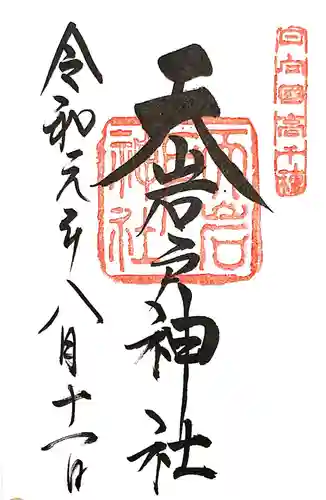 日向國高千穂
天岩戸神社
令和元年八月十一日
天岩
神社